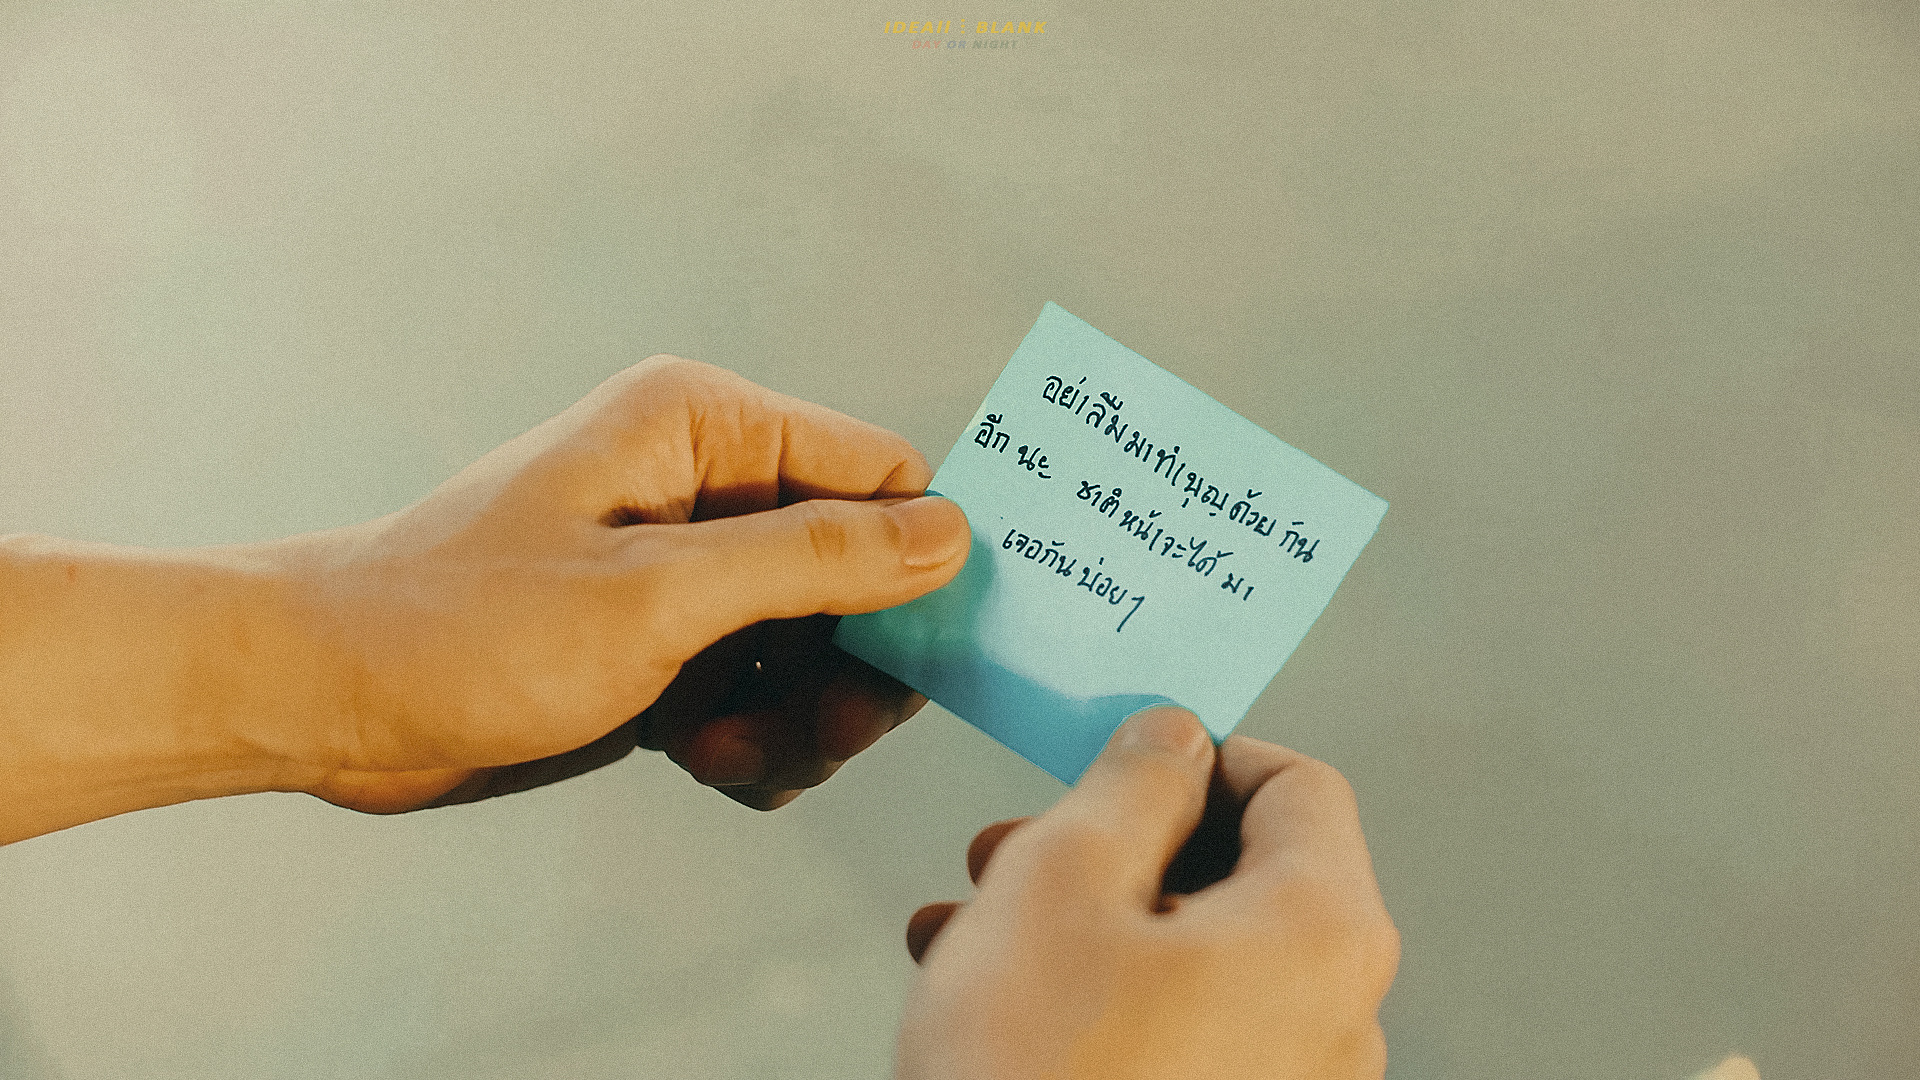 IDEAII : BLANK
DAY OR NIGHT
อย่าลืมมาทำบุญด้วยกัน
อีกนะ ชาติหน้าจะได้มา
เจอกันบ่อยๆ